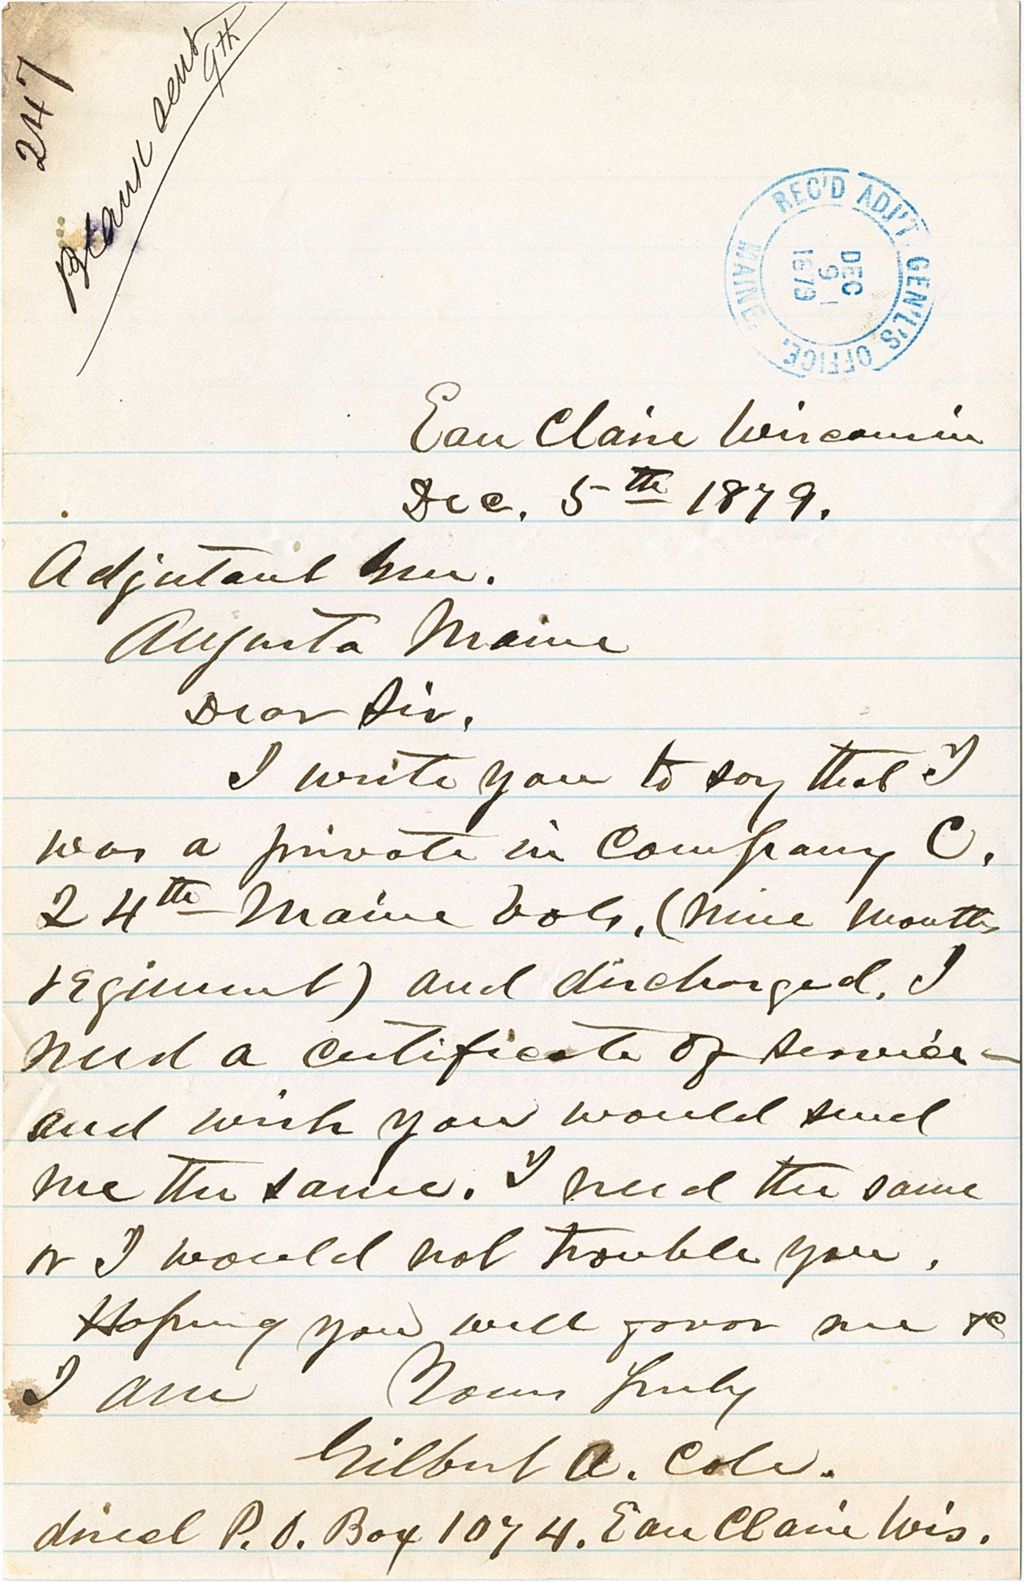 247
Blank sent
9th
REC'D ADJ'T GEN'L'S OFFICE, MAINE
DEC
9
1879
Eau Claire Wisconsin
Dec. 5th 1879.
Adjutant Gen.
Augusta Maine
Dear Sir,
I write you to say that I
was a private in Company C.
24th Maine Vols, (Nine Months
regiment) and discharged. I
need a certificate of service
and wish you would send
me the same. I need the same
or I would not trouble you.
Hoping you will favor me &c
I am Yours truly
Gilbert A. Cole.
direct P.O. Box 1074. Eau Claire Wis.